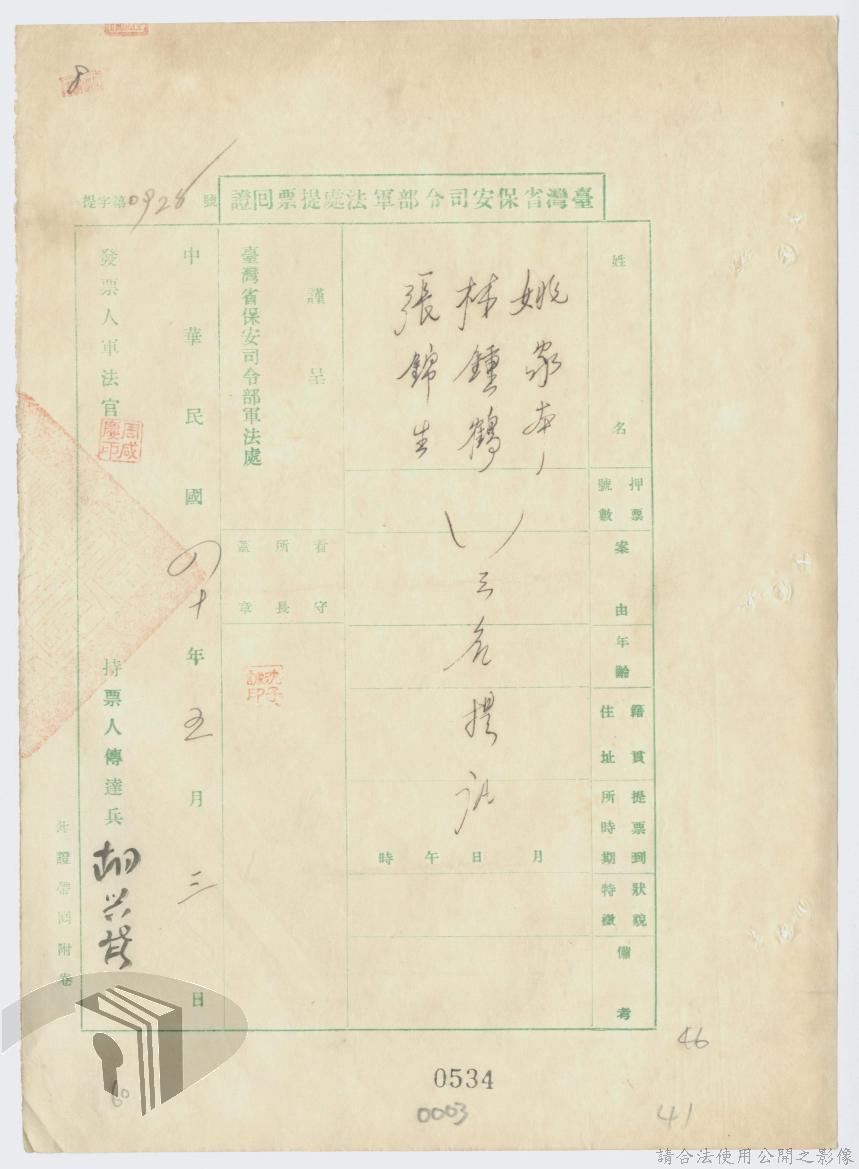 8
臺灣省保安司令部軍法處提票回證
提字第0928號
姓名
押票號數
案由
年齡
籍貫
住址
提票到所時期
狀貌特徵
備考
姚家本
林鍾鶴
張錦生
三名提訊
月 日 午 時
謹呈
臺灣省保安司令部軍法處
看守所長蓋章
中華民國四十年五月三日
發票人軍法官
周咸慶印
持票人傳達兵
此證帶回附卷
46
0534
0003
41
請合法使用公開之影像